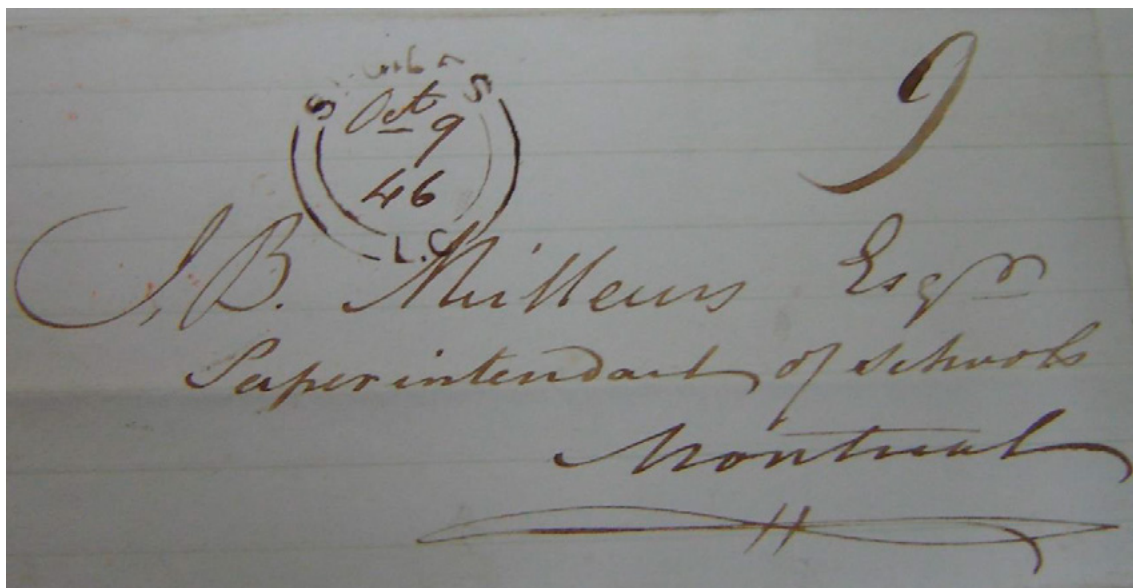 9
Oct
9
46
L.C
J. B. Meilleurs Esqr
Superintendant of schools
Montreal